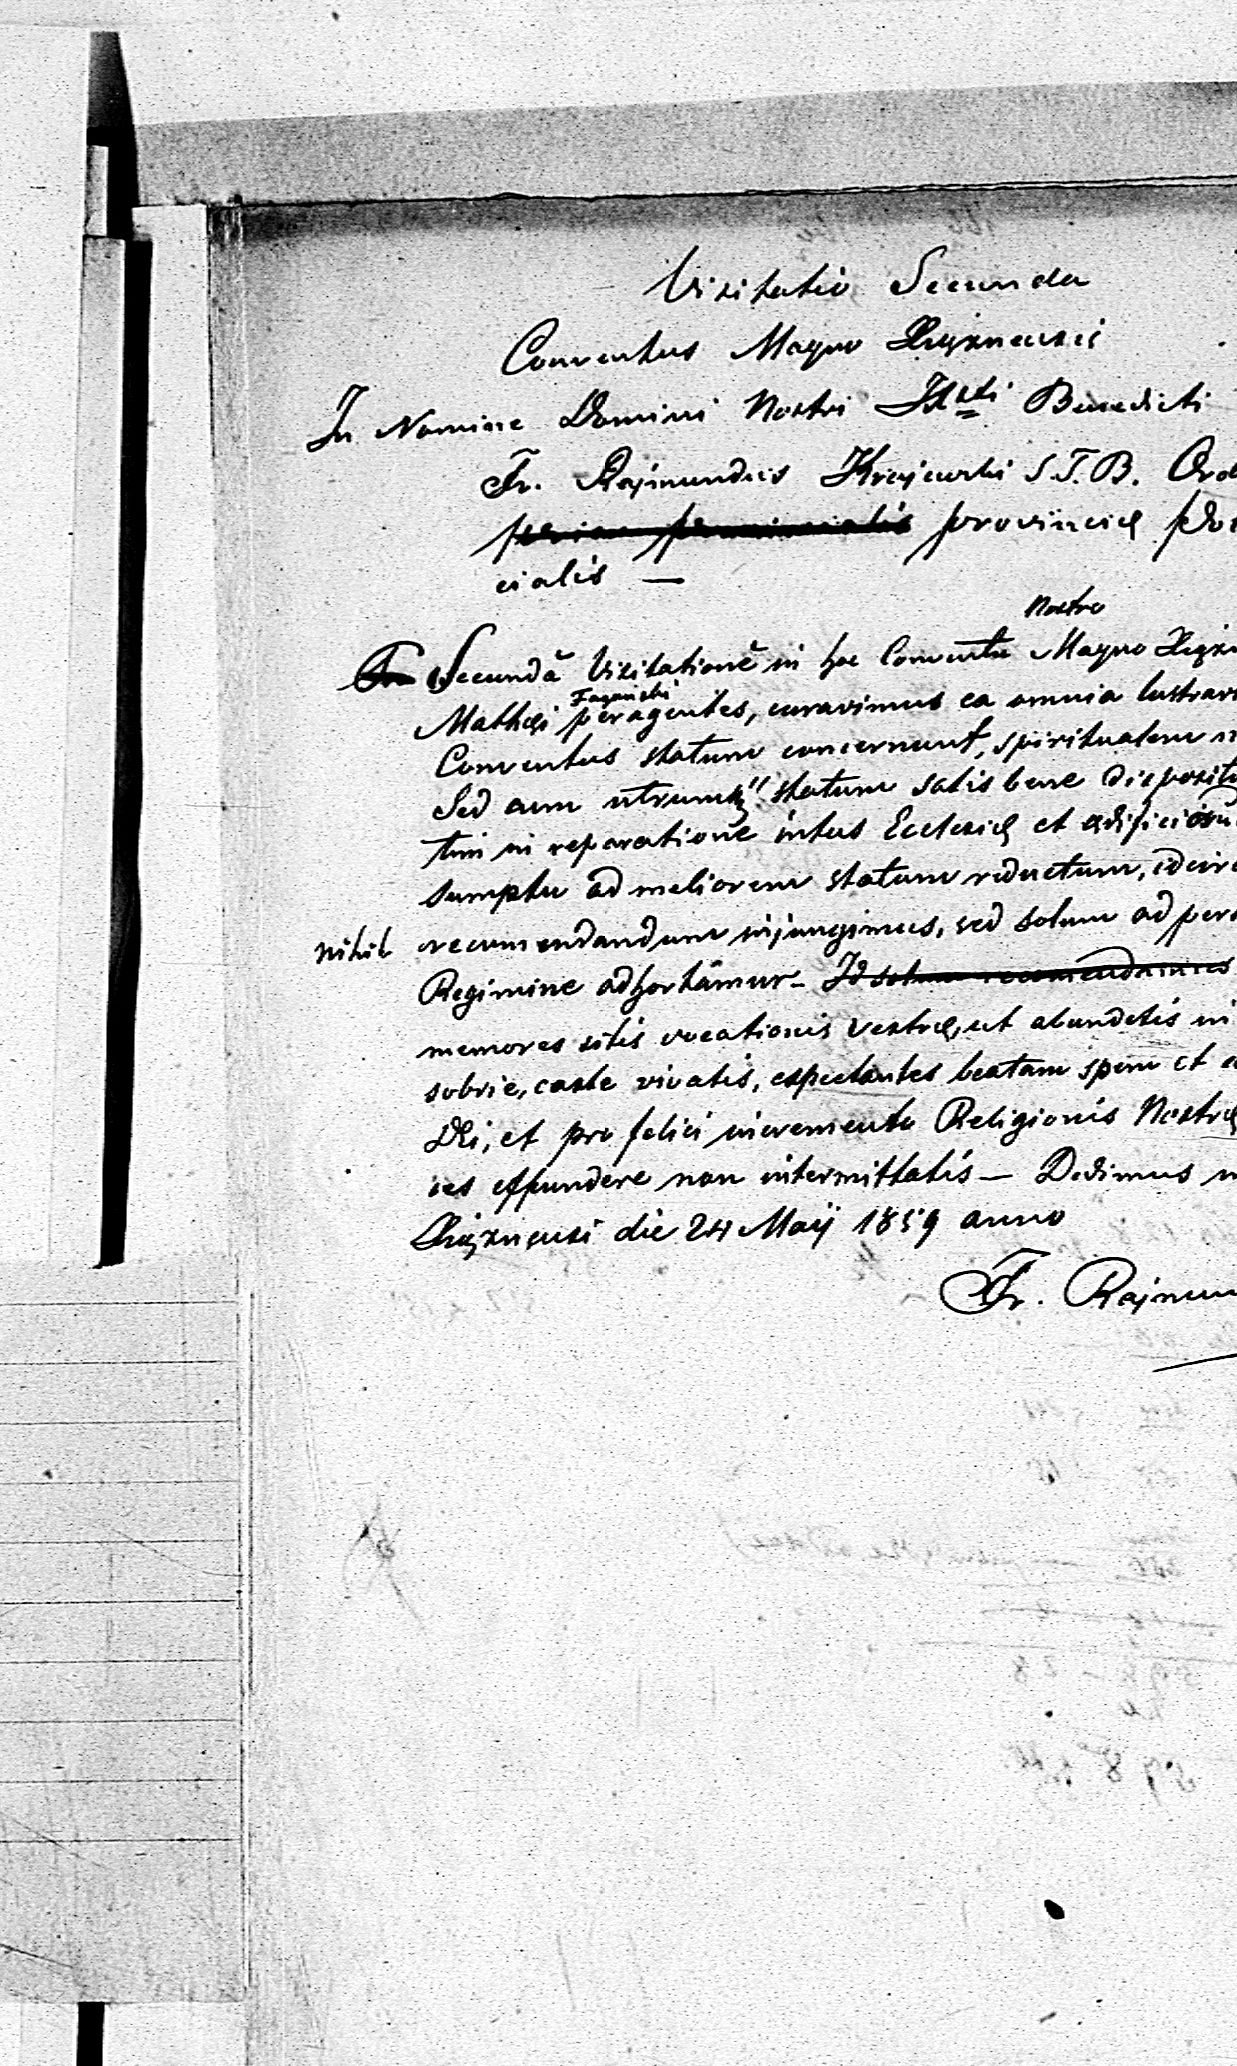 Visitatio Secunda
Conventus Magno Xiąznensis
In Nomine Domini Nostri Benedicti
Fr. Rajmundus Krajewski S.T.B. Ord
provinciæ
cialis —
Nostro
Secundā Visitationē in hoc Conventu Magno
Mathæi peragentes, curavimus ea omnia lustrar
Conventus statum concernunt, spiritualem
Sed cum utrumq statum satis bene disposit
tim in reparatione intus Ecclesiæ et ædificiorū
sumptu ad meliorem statum reductum, idcirc
nihil recumendandum injungimus, sed solum ad pers
Regimine adhortāmur – Id solum recomendamus
memores sitis vocationis vestræ, ut abundetis in
sobrie, caste vivatis, expectantes beatam spem et
Dei, et pro felici incremento Religionis Nostræ
ces effundere non intermittatis — Dedimus
Xiąznensi die 24 Maij 1859 anno
Fr. Rajmun